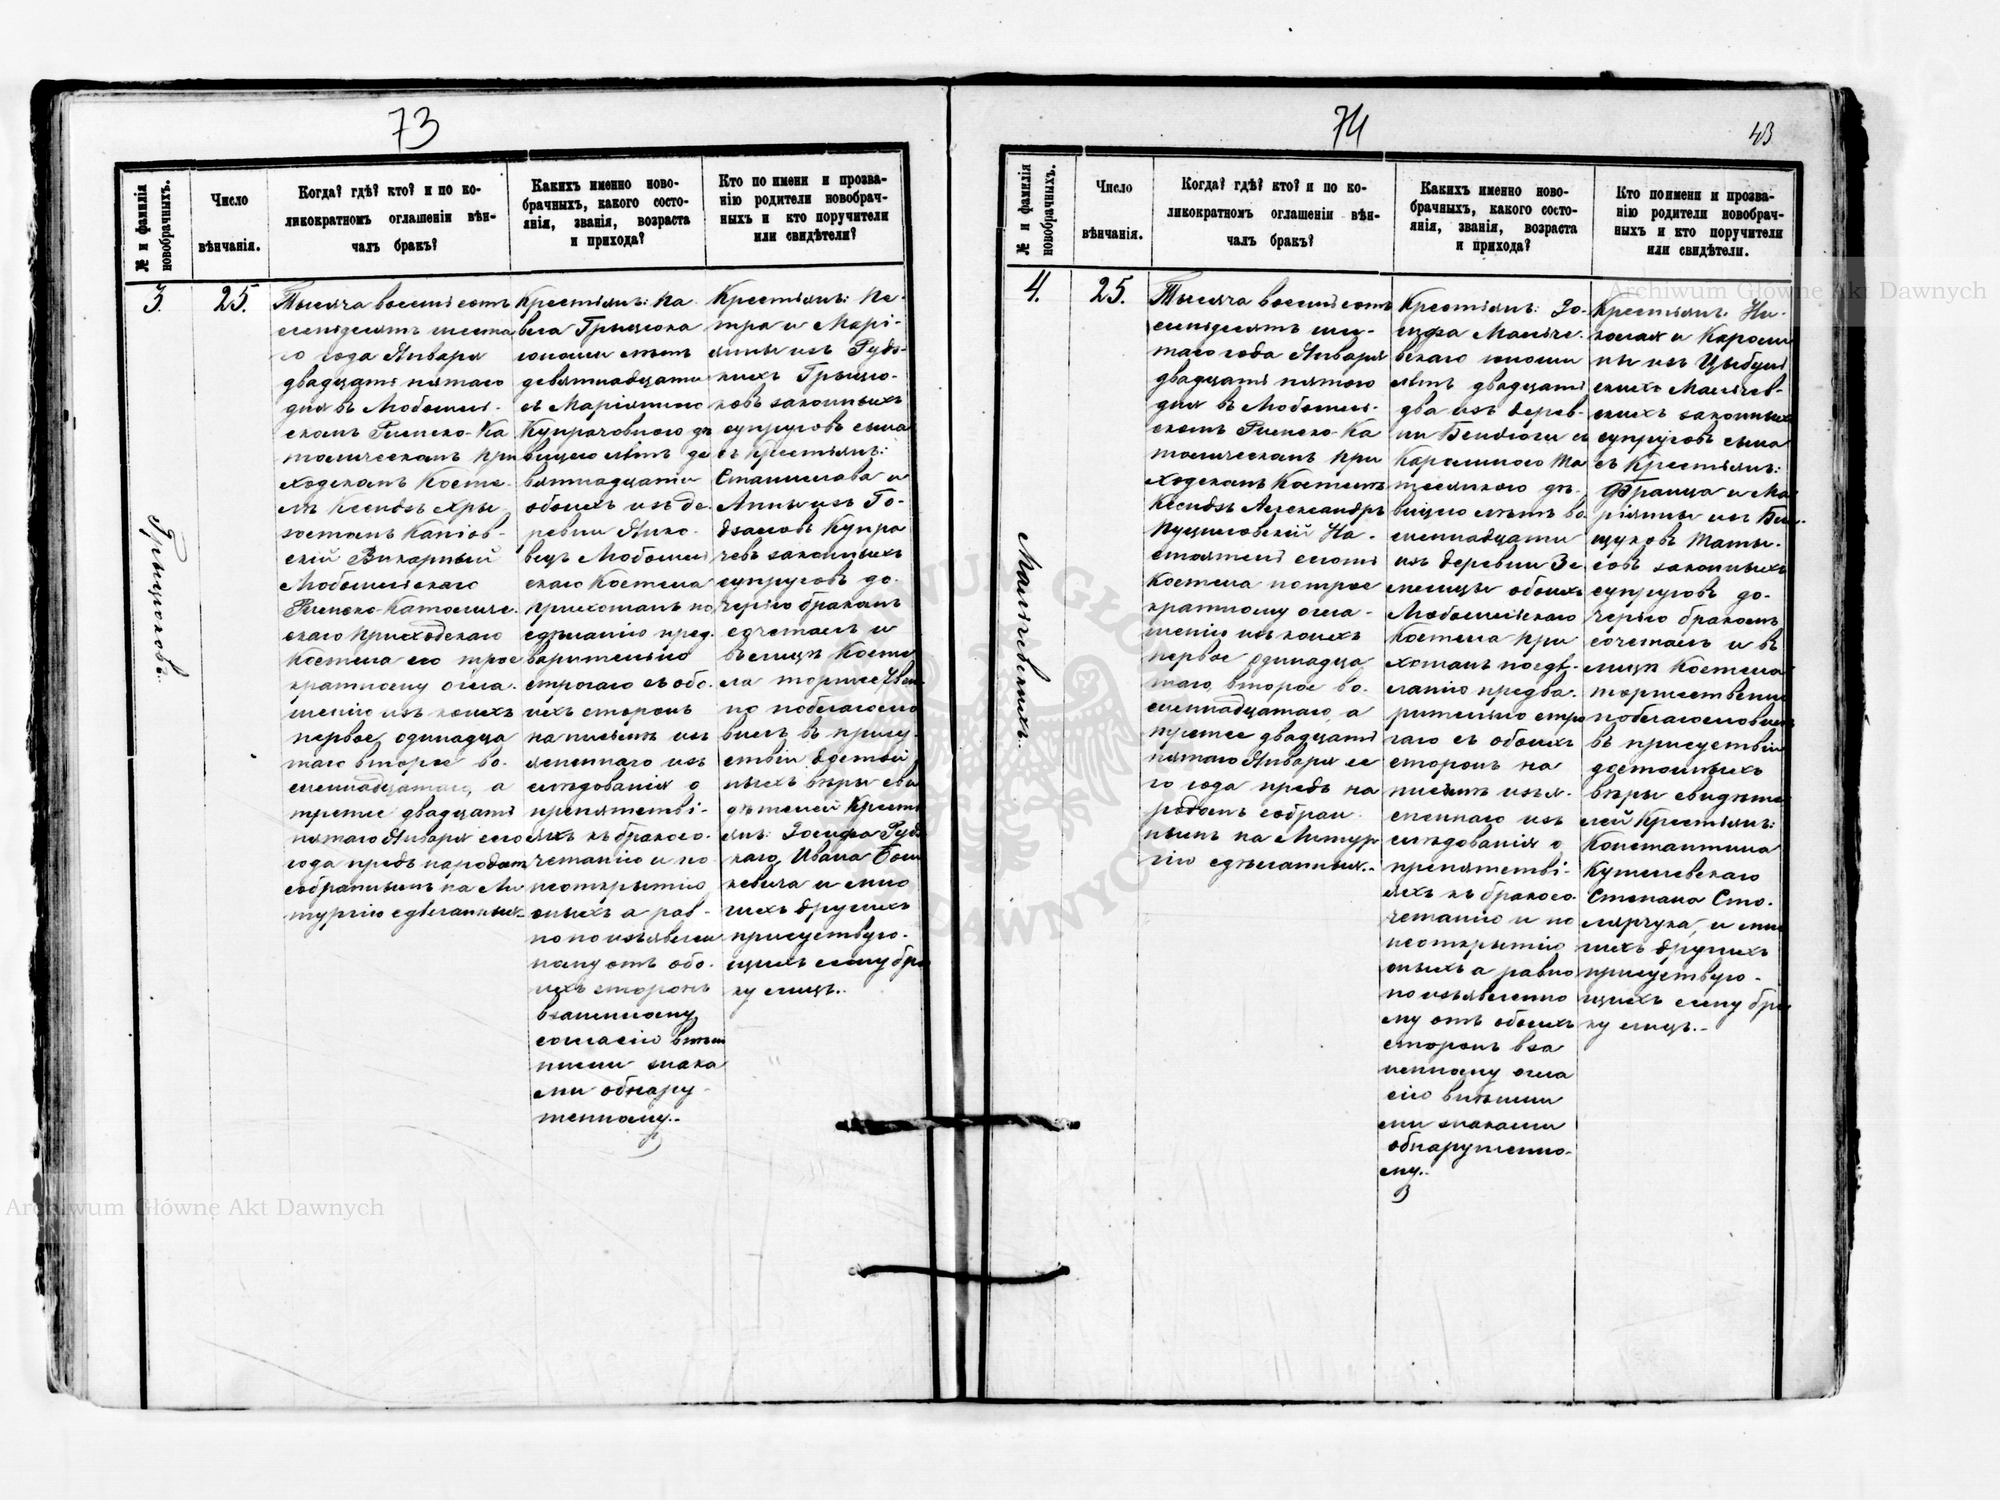 73
№ и фамилія новобрачныхъ.
Число вѣнчанія.
Когда? гдѣ? кто? и по ко-
ликократномъ оглашеніи вѣн-
чалъ бракъ?
Каких именно ново-
брачныхъ, какого состо-
янія, званія, возраста
и прихода?
Кто по имени и прозва-
нію родители новобрач-
ныхъ и кто поручители
или свидѣтели?
3.
Грыцюковъ.
25.
Тысяча восемьсотъ
семьдесятъ шеста
го года Января
двадцать пятаго
дня въ Любомль-
скомъ Римско-Ка
толическомъ при
ходскомъ Косте-
лѣ Ксендзъ Хры
зостомъ
скій Викарный
Любомльскаго
Римско-Католиче-
скаго Приходскаго
Костела его трое
кратному огла-
шенію изъ коихъ
первое одинадца
таго второе во-
семнадцатаго, а
третее двадцать
пятаго Января сего
года предъ народомъ
собраннымъ на Ли
тургію сдѣланныхъ
Крестьянъ: Па
вла Грыцюка
юношу лѣтъ
девятнадцати
съ Маріянною
Купрачовною дѣ
вицею лѣтъ де
вятнадцати
обоихъ изъ де-
ревни Янко-
вецъ Любомль
скаго Костела
прихожанъ по
сдѣланію пред-
варительно
строгаго съ обо-
ихъ сторонъ
на письмѣ изъ
ясненнаго из
слѣдованія о
препятстві-
яхъ къ бракосо-
четанію и по
неоткрытію
оныхъ а рав-
но по изъявлен
ному отъ обо-
ихъ сторонъ
взаимному
согласію внѣш
ними знака
ми обнару-
женному.-
Крестьянъ: Пе-
тра и Марі-
янны изъ Рудз-
кихъ Грыцю-
ковъ законныхъ
супруговъ сына
съ Крестьянъ:
Станислава и
Анны изъ Го-
дзамовъ Купра
чевъ законныхъ
супруговъ до-
черію бракомъ
сочеталъ и
въ лицѣ Косте
ла торжествен
но поблагосло
вилъ въ прису-
ствіи достой
ныхъ вѣры сви
дѣтелей Кресть
янъ: Іосифа Рудз
каго, Ивана
кевича и мно
гихъ другихъ
присуствую-
щихъ сему бра
ку лицъ.-
74
43
№ и фамилія новобрачныхъ.
Число вѣнчанія.
Когда? гдѣ? кто? и по ко-
ликократномъ оглашеніи вѣн-
чалъ бракъ?
Каких именно ново-
брачныхъ, какого состо-
янія, званія, возраста
и прихода?
Кто по имени и прозва-
нію родители новобрач-
ныхъ и кто поручители
или свидѣтели.
4.
Малячевскихъ.
25.
Тысяча восемьсотъ
семьдесятъ шес-
таго года Января
двадцать пятого
дня въ Любомль-
скомъ Римско-Ка
толическомъ при
ходскомъ Костелѣ
Ксендзъ Александръ
На-
стоятель сего
Костела по трое
кратному огла-
шенію изъ коихъ
первое одинадца
таго, второе во-
семнадцатаго, а
третее двадцать
пятаго Января се
го года предъ на
родомъ собран
нымъ на Литур
гію сдѣланныхъ.-
Крестьянъ: Іо-
сифа Маляче-
вскаго юношу
лѣтъ двадцать
два изъ дерев-
ни Бендюги съ
Каролиною Ма
тесякою дѣ-
вицею лѣтъ во-
семнадцати
изъ деревни Зе
млицы обоихъ
Любомльскаго
Костела при
хожанъ по сдѣ-
ланію предва-
рительно стро
гаго съ обоихъ
сторонъ на
письмѣ изъя-
сненнаго из
слѣдованія о
препятстві-
яхъ къ бракосо-
четанію и по
неоткрытію
оныхъ а равно
по изъявленно
му отъ обоихъ
сторонъ вза
имному согла
сію внѣшни
ми знаками
обнаруженно-
му.-
Крестьянъ. Ни-
колая и Кароли
ны изъ Цыбуль
скихъ Малячев-
скихъ законныхъ
супруговъ сына
съ Крестьянъ:
Франца и Ма
ріянны изъ
законныхъ
супруговъ до-
черію бракомъ
сочеталъ и въ
лицѣ Костела
торжественно
поблагословилъ
въ присуствіи
достойныхъ
вѣры свидѣте
лей Крестьянъ:
Константина
Степана Сто-
лярчука, и мно
гихъ другихъ
присуствую-
щихъ сему бра
ку лицъ.-
Archiwum Główne Akt Dawnych
Archiwum Główne Akt Dawnych